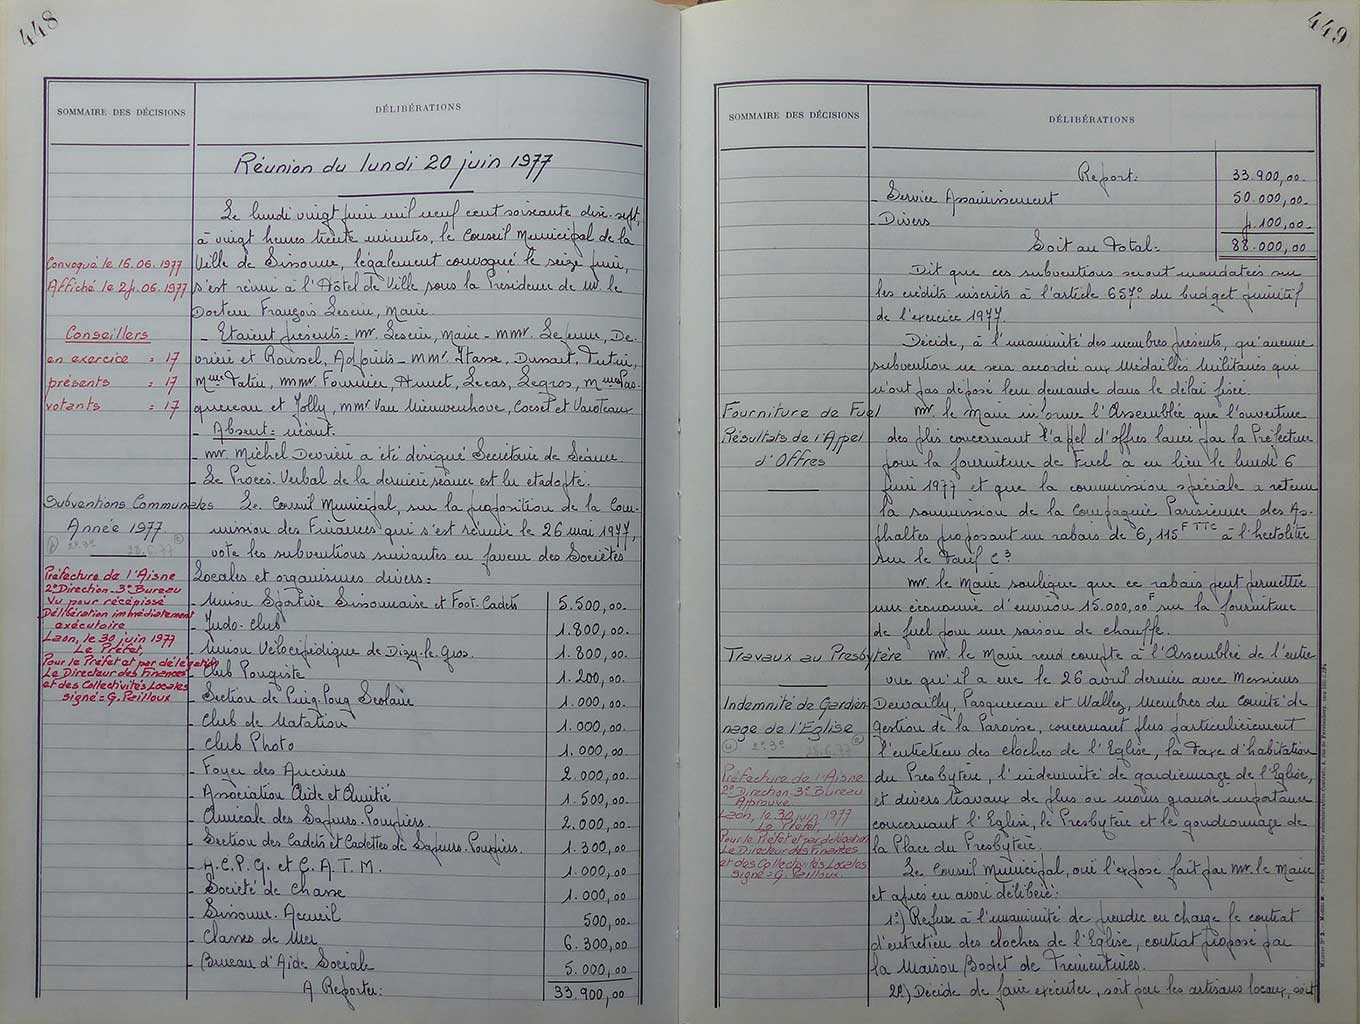 448
SOMMAIRE DES DÉCISIONS
DÉLIBÉRATIONS
Réunion du lundi 20 juin 1977
Le lundi vingt juin mil neuf cent soixante dix-sept,
à vingt heures trente minutes, le Conseil Municipal de la
Convoqué le 16.06.1977
Ville de Sissonne, légalement convoqué le seize juin,
Affiché le 24.06.1977
s'est réuni à l'Hôtel de Ville sous la Présidence de Mr le
Docteur François Lesein, Maire.
Conseillers
en exercice = 17
présents = 17
votants = 17
- Etaient présents: mr. Lesein, Maire - mmr. Lejeune, De-
vrière et Roussel, Adjoints - mmr.
Mme mmr. Fournier, Hunet, Lecas, Legros, Mmes Pas-
quereau et Jolly, mmr Van Nieuwenhove, Cocset et Vanoteaux
- Absent: néant.
- mr. Michel Devrière a été désigné Secrétaire de Séance.
- Le Procès-Verbal de la dernière séance est lu et adopté.
Subventions Communales
Année 1977
Le Conseil Municipal, sur la proposition de la Com-
mission des Finances qui s'est réunie le 26 mai 1977,
vote les subventions suivantes en faveur des Sociétés
Locales et organismes divers:
2e 3e 28.6.77
Préfecture de l'Aisne
2e Direction - 3e Bureau
Vu pour récépissé
Délibération immédiatement
exécutoire
Laon, le 30 juin 1977
Le Préfet,
Pour le Préfet et par délégation
Le Directeur des Finances
et des Collectivités Locales
signé = G. Peilloux
- Union Sportive Sissonnaise et Foot-Cadets 5.500,00-
- Judo-Club 1.800,00-
- Union Vélocipédique de Dizy-le-Gros 1.800,00-
- Club Pongiste 1.200,00-
- Section de Ping-Pong Scolaire 1.000,00-
- Club de Natation 1.000,00-
- Club Photo 1.000,00-
- Foyer des Anciens 2.000,00-
- Association Aide et Amitié 1.500,00-
- Amicale des Sapeurs-Pompiers 2.000,00-
- Section des Cadets et Cadettes de Sapeurs-Pompiers 1.300,00
- A.C.P.G. et C.A.T.M. 1.000,00
- Société de Chasse 1.000,00
- Sissonne-Accueil 500,00
- Classes de Mer 6.300,00
- Bureau d'Aide Sociale 5.000,00
A Reporter: 33.900,00
449
SOMMAIRE DES DÉCISIONS
DÉLIBÉRATIONS
Report: 33.900,00-
- Service Assainissement 50.000,00-
- Divers 4.100,00-
Soit au Total: 88.000,00
Dit que ces subventions seront mandatées sur
les crédits inscrits à l'article 657° du budget primitif
de l'exercice 1977.
Décide, à l'unanimité des membres présents, qu'aucune
subvention ne sera accordée aux Médaillés Militaires qui
n'ont pas déposé leur demande dans le délai fixé.
Fourniture de Fuel
Résultats de l'Appel
d'Offres
mr. le Maire informe l'Assemblée que l'ouverture
des plis concernant l'apel d'offres lancé par la Préfecture
pour la fourniture de Fuel a eu lieu le lundi 6
juin 1977 et que la commission spéciale a retenu
la soumission de la Compagnie Parisienne des As-
phaltes proposant un rabais de 6,115 F TTC à l'hectolitre
sur le tarif C3
mr. le Maire souligne que ce rabais peut permettre
une économie d'environ 15.000,00 F sur la fourniture
de fuel pour une saison de chauffe.
Travaux au Presbytère
Indemnité de Gardien-
nage de l'Eglise
mr. le Maire rend compte à l'Assemblée de l'entre-
vue qu'il a eue le 26 avril dernier avec Messieurs
Dewailly, Pasquereau et Wallez, Membres du Comité de
Gestion de la Paroisse, concernant plus particulièrement
l'entretien des cloches de l'Eglise, la taxe d'habitation
du Presbytère, l'indemnité de gardiennage de l'Eglise,
et divers travaux de plus ou moins grande importance
concernant l'Eglise, le Presbytère et le goudronnage de
la Place du Presbytère.
2e 3e 28.6.77
Préfecture de l'Aisne
2e Direction - 3e Bureau
Approuvé
Laon, le 30 juin 1977
Le Préfet,
Pour le Préfet et par délégation
Le Directeur des Finances
et des Collectivités Locales
signé = G. Peilloux.
Le Conseil Municipal, ouï l'exposé fait par mr. le Maire
et après en avoir délibéré:
1°) Refuse à l'unanimité de prendre en charge le contrat
d'entretien des cloches de l'Eglise, contrat proposé par
la Maison Bodet de Trémentines.
2°) Décide de faire exécuter, soit par les artisans locaux, soit